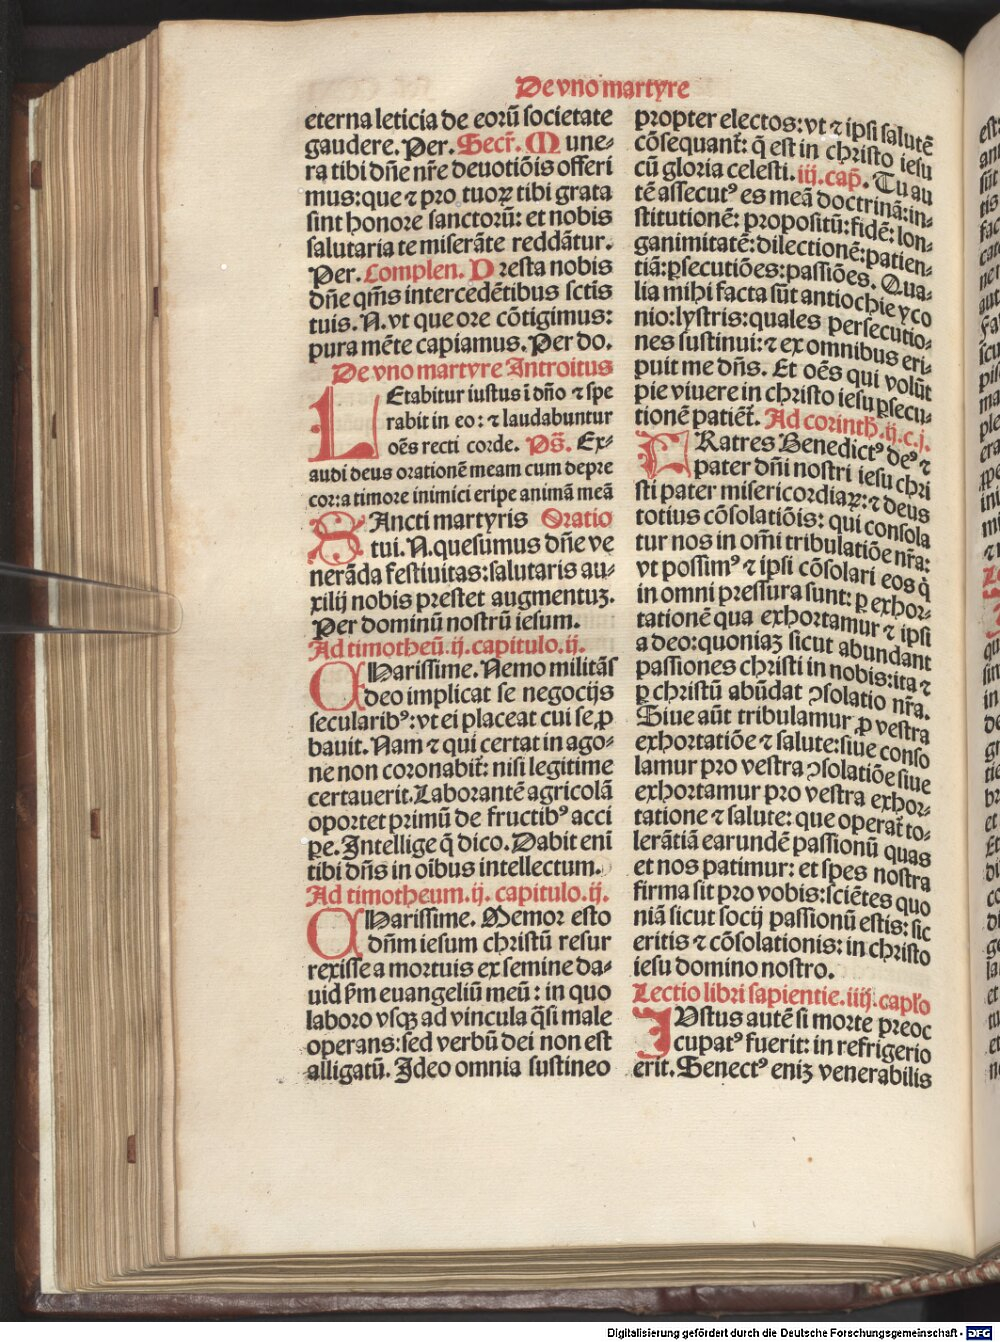 De vno martyre
eterna leticia de eorū societate
gaudere. Per. Secr̄. Mune⸗
ra tibi dn̄e nr̄e deuotiōis offeri
mus: que ⁊ pro tuoꝝ tibi grata
sint honore sanctorū: et nobis
salutaria te miserāte reddātur.
Per. Complen. Presta nobis
dn̄e qm̄s intercedētibus sctīs
tuis. N. vt que ore cōtigimus:
pura mēte capiamus. Per do.
De vno martyre Introitus
LEtabitur iustus ī dn̄o ⁊ spe
rabit in eo: ⁊ laudabuntur
oēs recti corde. Ps̄. Ex⸗
audi deus orationē meam cum depre
cor: a timore inimici eripe animā meā
SAncti martyris Oratio
tui. N. quesumus dn̄e ve
nerāda festiuitas: salutaris au⸗
xilij nobis prestet augmentuꝫ.
Per dominū nostrū iesum.
Ad timotheū. ij. capitulo. ij.
CHarissime. Nemo militās
deo implicat se negocijs
secularibꝰ: vt ei placeat cui se ꝓ
bauit. Nam ⁊ qui certat in ago⸗
ne non coronabit̄: nisi legitime
certauerit. Laborantē agricolā
oportet primū de fructibꝰ acci
pe. Intellige q̄ dico. Dabit eni̅
tibi dn̄s in oībus intellectum.
Ad timotheum. ij. capitulo. ij.
CHarissime. Memor esto
dn̄m iesum christū resur
rexisse a mortuis ex semine da⸗
uid ẜm euangeliū meū: in quo
laboro vsqꝫ ad vincula q̄si male
operans: sed verbū dei non est
alligatū. Ideo omnia sustineo
propter electos: vt ⁊ ipsi salutē
cōsequant̄: q̄ est in christo iesu
cū gloria celesti. iij. cap̄. Tu au
tē assecutꝰ es meā doctrinā: in⸗
stitutionē: propositū: fidē: lon⸗
ganimitatē: dilectionē: patien⸗
tiā: ꝑsecutiōes: passiōes. Qua⸗
lia mihi facta sūt antiochie yco
nio: lystris: quales persecutio⸗
nes sustinui: ⁊ ex omnibus eri⸗
puit me dn̄s. Et oēs qui volūt
pie viuere in christo iesu ꝑsecu⸗
tionē patiēt̄. Ad corinth̄. ij. c. j.
FRatres Benedictꝰ deꝰ ⁊
pater dn̄i nostri iesu chri
sti pater misericordiaꝝ: ⁊ deus
totius cōsolatiōis: qui consola
tur nos in om̄i tribulatiōe nr̄a:
vt possimꝰ ⁊ ipsi cōsolari eos q̇
in omni pressura sunt: ꝑ exhor⸗
tationē qua exhortamur ⁊ ipsi
a deo: quoniaꝫ sicut abundant
passiones christi in nobis: ita ⁊
ꝑ christū abūdat ↄsolatio nr̄a.
Siue aūt tribulamur ꝓ vestra
exhortatiōe ⁊ salute: siue conso
lamur pro vestra ↄsolatiōe siue
exhortamur pro vestra exhor⸗
tatione ⁊ salute: que operat̄ to⸗
lerātiā earundē passionū quas
et nos patimur: et spes nostra
firma sit pro vobis: sciētes quo
niā sicut socij passionū estis: sic
eritis ⁊ cōsolationis: in christo
iesu domino nostro.
Lectio libri sapientie. iiij. capl̓o
IUstus autē si morte preoc
cupatꝰ fuerit: in refrigerio
erit. Senectꝰ eniꝫ venerabilis
Digitalisierung gefördert durch die Deutsche Forschungsgemeinschaft - DFG